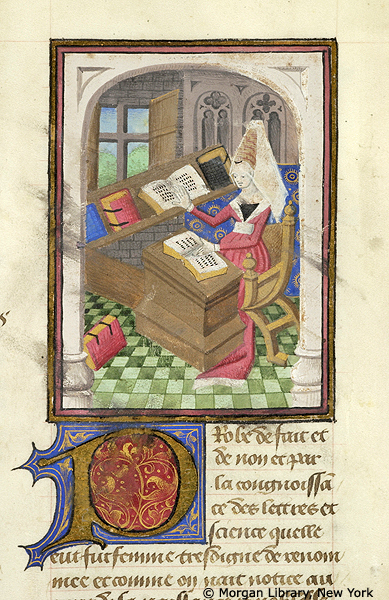 Probe de fait et
de non et par
la congnoissã
ce des lettres et
science quelle
eut fut femme tresdigne de renom
mee et comme on part notice au
© Morgan Library, New York